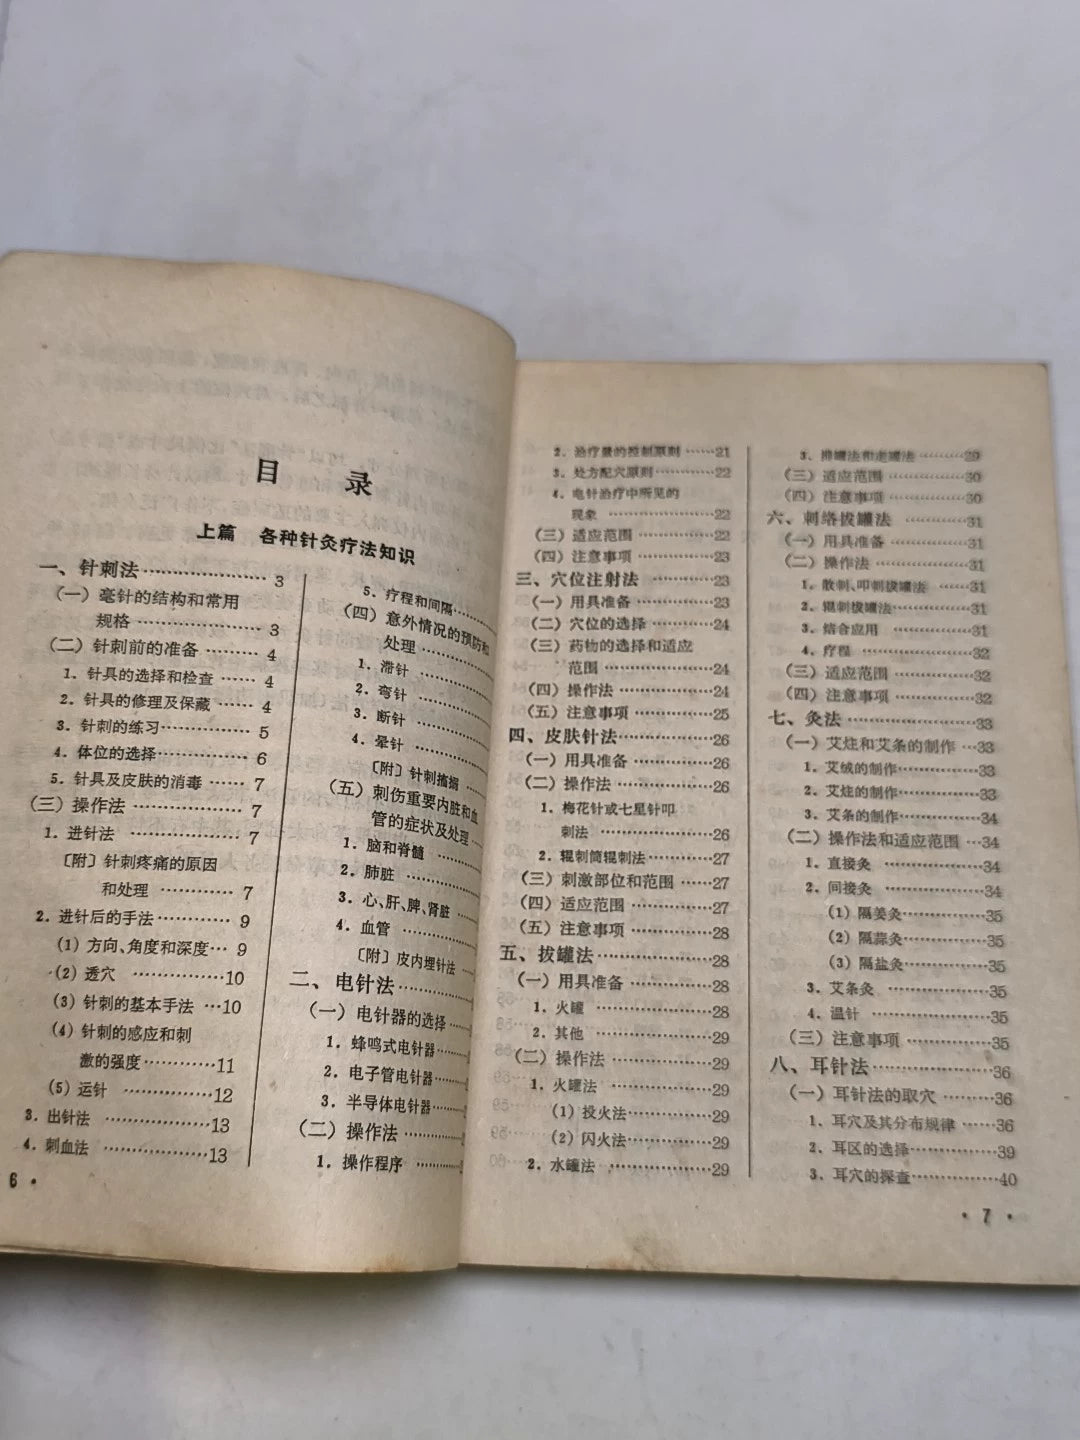 目 录
上篇 各种针灸疗法知识
一、针刺法…………………3
（一）毫针的结构和常用
规格…………………3
（二）针刺前的准备………4
1．针具的选择和检查……4
2．针具的修理及保藏……4
3．针刺的练习……………5
4．体位的选择……………6
5．针具及皮肤的消毒……7
（三）操作法………………7
1．进针法…………………7
〔附〕针刺疼痛的原因
和处理…………7
2．进针后的手法…………9
（1）方向、角度和深度…9
（2）透穴………………10
（3）针刺的基本手法…10
（4）针刺的感应和刺
激的强度…………11
（5）运针………………12
3．出针法………………13
4．刺血法………………13
6 ·
5．疗程和间隔…………
（四）意外情况的预防和
处理………………
1．滞针…………………
2．弯针…………………
3．断针…………………
4．晕针…………………
〔附〕针刺捣搦
（五）刺伤重要内脏和血
管的症状及处理…
1．脑和脊髓……………
2．肺脏…………………
3．心、肝、脾、肾脏……
4．血管…………………
〔附〕皮内埋针法……
二、电针法………………
（一）电针器的选择……
1．蜂鸣式电针器………
2．电子管电针器………
3．半导体电针器………
（二）操作法……………
1．操作程序……………
2．治疗量的控制原则……21
3．处方配穴原则…………22
4．电针治疗中所见的
现象…………………22
（三）适应范围…………22
（四）注意事项…………22
三、穴位注射法…………23
（一）用具准备…………23
（二）穴位的选择………24
（三）药物的选择和适应
范围………………24
（四）操作法……………24
（五）注意事项…………25
四、皮肤针法……………26
（一）用具准备…………26
（二）操作法……………26
1．梅花针或七星针叩
刺法………………26
2．辊刺筒辊刺法………27
（三）刺激部位和范围……27
（四）适应范围…………27
（五）注意事项…………28
五、拔罐法………………28
（一）用具准备…………28
1．火罐…………………28
2．其他…………………29
（二）操作法……………29
1．火罐法………………29
（1）投火法……………29
（2）闪火法……………29
2．水罐法………………29
3．排罐法和走罐法………29
（三）适应范围…………30
（四）注意事项…………30
六、刺络拔罐法…………31
（一）用具准备…………31
（二）操作法……………31
1．散刺、叩刺拔罐法……31
2．辊刺拔罐法…………31
3．结合应用……………31
4．疗程…………………32
（三）适应范围…………32
（四）注意事项…………32
七、灸法…………………33
（一）艾炷和艾条的制作…33
1．艾绒的制作…………33
2．艾炷的制作…………33
3．艾条的制作…………34
（二）操作法和适应范围…34
1．直接灸………………34
2．间接灸………………34
（1）隔姜灸……………35
（2）隔蒜灸……………35
（3）隔盐灸……………35
3．艾条灸………………35
4．温针…………………35
（三）注意事项…………35
八、耳针法………………36
（一）耳针法的取穴………36
1、耳穴及其分布规律……36
2．耳区的选择…………39
3．耳穴的探查…………40
· 7 ·